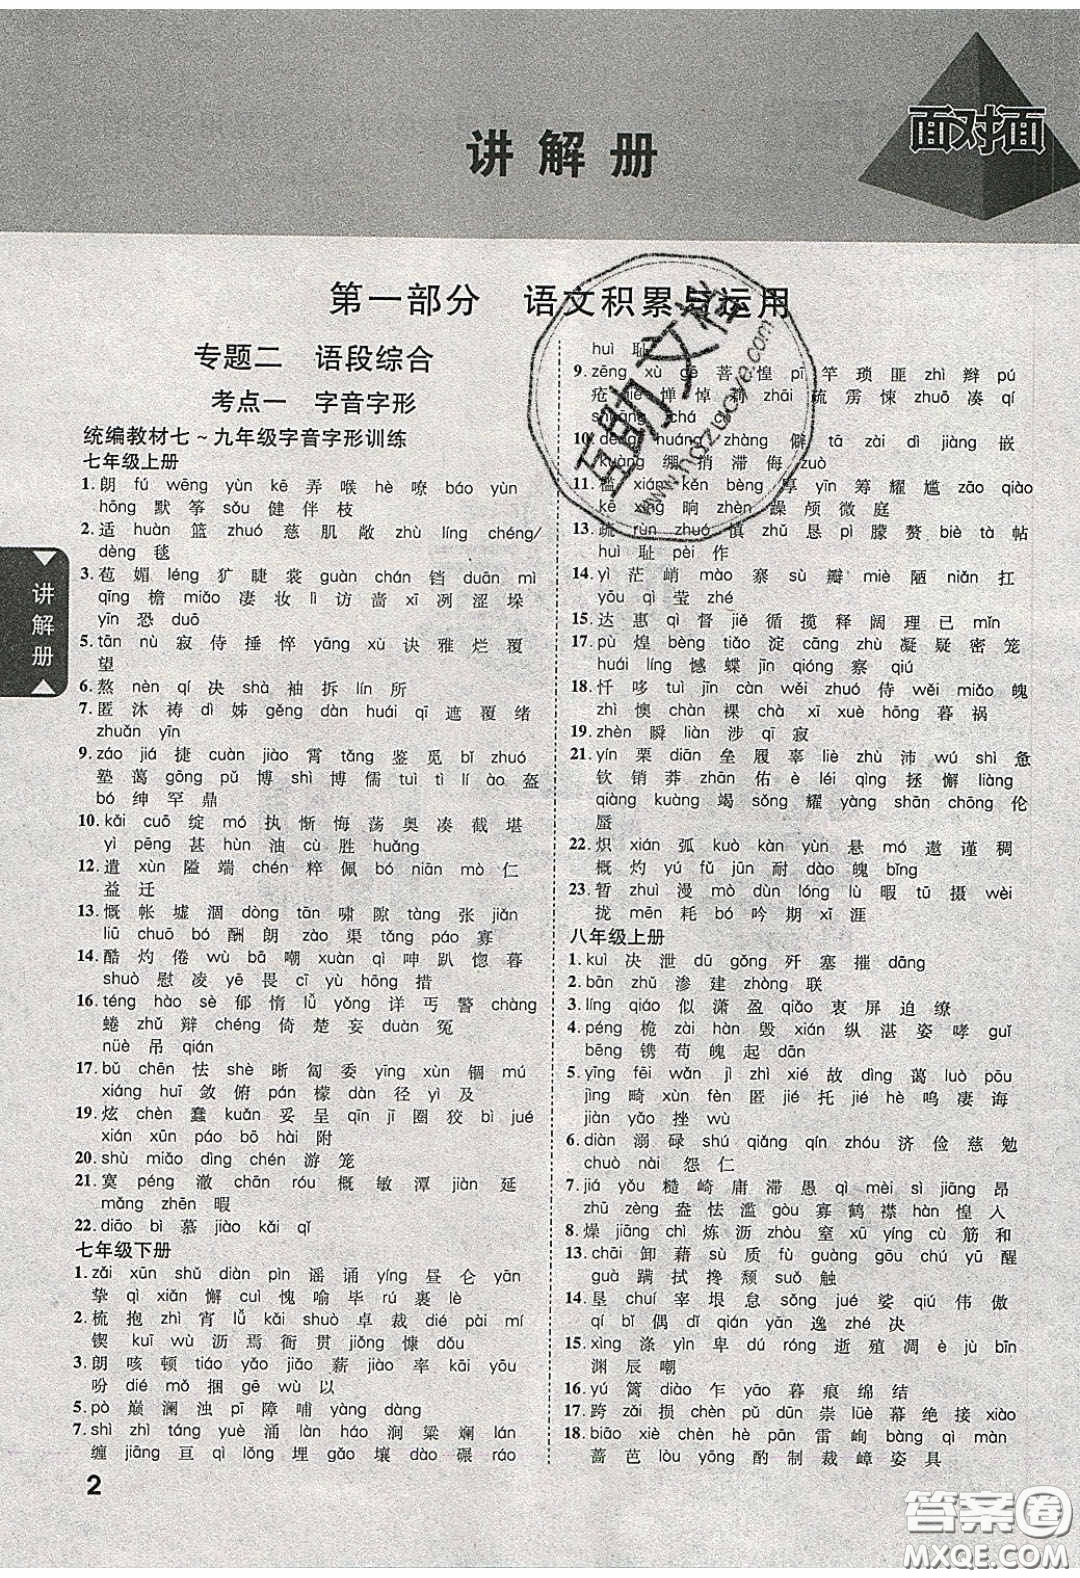 讲解册
面对面
第一部分 语文积累与运用
专题二 语段综合
考点一 字音字形
统编教材七~九年级字音字形训练
七年级上册
1. 朗 fú wēng yùn kē 弄 喉 hè 嘹 báo yùn
hōng 默 筝 sǒu 健 伴 枝
2. 适 huàn 篮 zhuó 慈 肌 敞 zhù líng chéng/
dèng 毯
3. 苞 媚 léng 犷 睫 裳 guàn chán 铛 duān mì
qīng 檐 miǎo 凄 妆 lì 访 啬 xī 冽 涩 垛
yīn 恐 duō
5. tān nù 寂 侍 捶 悴 yāng xù 诀 雅 烂 覆
望
6. 熬 nèn qí 决 shà 袖 拆 lín 所
7. 匿 沐 祷 dì 姊 gěng dàn huái qī 遮 覆 绪
zhuǎn yīn
9. záo jiá 捷 cuàn jiào 霄 tǎng 鉴 觅 bǐ zhuó
塾 蔼 gōng pǔ 博 shì 博 儒 tuì tì lǐ ào 盔
bó 绅 罕 鼎
10. kǎi cuō 绽 mó 执 惭 悔 荡 奥 凑 截 堪
yì pēng 甚 hùn 油 cù 胜 huǎng
12. 遣 xùn 隘 端 chén 粹 佩 bó niān mò 仁
益 迁
13. 慨 帐 墟 涸 dòng tān 啸 隙 tàng 张 jiǎn
liū chuō bó 酬 朗 zào 渠 tǎng páo 寡
14. 酷 灼 倦 wù bā 嘲 xuàn qì 呻 趴 惚 暮
shuò 慰 凌 yē 畏 cì xī shuò hàn 措
16. téng hào sè 郁 惰 lǚ yǒng 详 丐 警 chàng
蜷 zhǔ 辩 chéng 倚 楚 妄 duàn 冤
nüè 吊 qián
17. bǔ chēn 怯 shè 晰 匐 委 yīng xùn 锢 mú
xiáng huī 敛 俯 pán 檬 dàn 径 yì 及
19. 炫 chèn 蠢 kuǎn 妥 呈 qīn jī 圈 狡 bì jué
xián xūn páo bō hài 附
20. shù miǎo dìng chén 游 笼
21. 寞 péng 澈 chān róu 概 敏 潭 jiàn 延
mǎng zhēn 暇
22. diāo bì 慕 jiào kǎi qǐ
七年级下册
1. zǎi xūn shǔ diàn pìn 谣 诵 yíng 昼 仑 yān
挚 qì xiǎn 懈 cuì 愧 喻 毕 rú 裹 lè
2. 梳 抱 zhì 宵 lǚ kǎi shuò 卓 裁 pái mí
锲 kuī wù 沥 焉 衔 贯 jiǒng 慷 dǒu
3. 朗 咳 顿 tiáo zhǎo 薪 jiào 率 kāi yōu
吩 dié mǒ 捆 gē wù 以
5. pò 巅 澜 浊 pī 障 哺 yàng dàng
7. shì zhì táng yuè 涌 làn háo 涧 粱 斓 lán
缠 jiāng 亘 qì lǒng 埋 gǎo 壤 dào làn
2
讲解册
huì 耻
zuò
15. 达 惠 qì 督 jiè 循 揽 释 阔 理 已 mǐn
17. pù 煌 bèng tiǎo 淀 cāng zhàng 凝 疑 密 笼
huái líng 憾 蝶 jīn qióng 察 qiú
18. 忏 哆 tuì jìn wēi zhuó 侍 wěi miǎo 魄
zhì 懊 chàn 裸 chà xī xué hōng 暮 祸
19. zhèn 瞬 liàn 涉 qì 寂
21. yín 栗 diān 垒 履 辜 liè zhù 沛 wú shì 惫
钦 销 莽 zhān 佑 è léi qìng 拯 懈 liàng
qiàng kuàng 竭 sǒng 耀 yàng shān chōng 伦
蜃
22. 炽 xián 弧 kuò kàn qiè 悬 mó 遨 谨 稠
概 灼 fú jūn 耐 dài 魄 bǐng
23. 暂 zhuì 漫 mò dùn lóng lù 暇 tū 摄 wèi
拢 mēn 耗 bó 吟 期 xī 涯
八年级上册
1. kuì 决 泄 dū gǒng 歼 塞 摧 dāng
2. bān zhǔ 渗 建 zhòng 联
3. líng qiáo 似 潇 盈 qiáo 衷 屏 迫 缭
4. péng 桅 zài hàn 毁 xián 纵 湛 姿 哮 guǐ
bēng 镌 苟 魄 起 dān
5. yīng fēi wǎn jǐ zhì xié 故 dīng 蔼 luò pōu
jìng 畸 xùn fèn 匿 jié 托 jié hè 呜 凄 诲
jiàn yào 挫 wù
6. diàn 溺 碌 shú qiǎng qín zhóu 济 俭 慈 勉
chuò nài 怨 仁
7. jiá yǒu 糙 崎 庸 滞 愚 qì mèi sì jiāng 昂
zhū zèng 盎 怯 滥 gòu 寡 鹤 襟 hàn 惶 人
8. 燥 jiāng chì 炼 沥 zhòu 窒 xū yíng cù 筋 和
13. chāi 卸 藉 sù 质 fú guàng gōng yú 醒
guà 蹒 拭 搀 颓 suǒ 触
14. 垦 chuí 宰 垠 怠 sǒng jué 娑 qiú 伟 傲
qí bǐ 偶 dī qián yān 逸 zhé 决
15. xìng 涤 yìn 卑 dú róng 逝 殖 凋 jù bēi
渊 辰 嘲
16. yú 篱 diào 乍 yāo 暮 痕 绵 结
17. 跨 zǎi 损 chèn pǔ dūn 崇 lüè 幕 绝 接 xiào
18. biāo xiè xuán pān 雷 峋 bìn qì màn
蔷 芭 lòu yōng 酌 制 裁 嶂 姿 具
答案圈
MXQE.COM